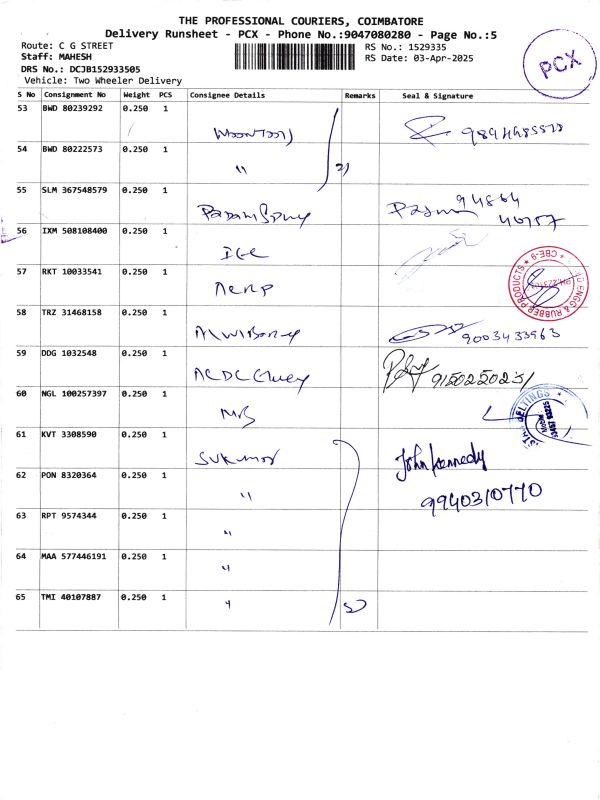 THE PROFESSIONAL COURIERS, COIMBATORE
Delivery Runsheet - PCX - Phone No.:9047080280 - Page No.:5
Route: C G STREET
RS No.: 1529335
Staff: MAHESH
RS Date: 03-Apr-2025
DRS No.: DCJB152933505
Vehicle: Two Wheeler Delivery
PCX
S No Consignment No Weight PCS Consignee Details Remarks Seal & Signature
53 BWD 80239292 0.250 1
54 BWD 80222573 0.250 1 "
55 SLM 367548579 0.250 1
94864
40757
56 IXM 508108400 0.250 1
57 RKT 10033541 0.250 1
ENGG & RUBBER PRODUCTS * CBE-9 *
58 TRZ 31468158 0.250 1 9003433963
59 DDG 1032548 0.250 1 9150250231
60 NGL 100257397 0.250 1
BELTINGS
61 KVT 3308590 0.250 1 SUKUMAR John Kennedy
62 PON 8320364 0.250 1 " 9940310770
63 RPT 9574344 0.250 1 "
64 MAA 577446191 0.250 1 "
65 TMI 40107887 0.250 1 "